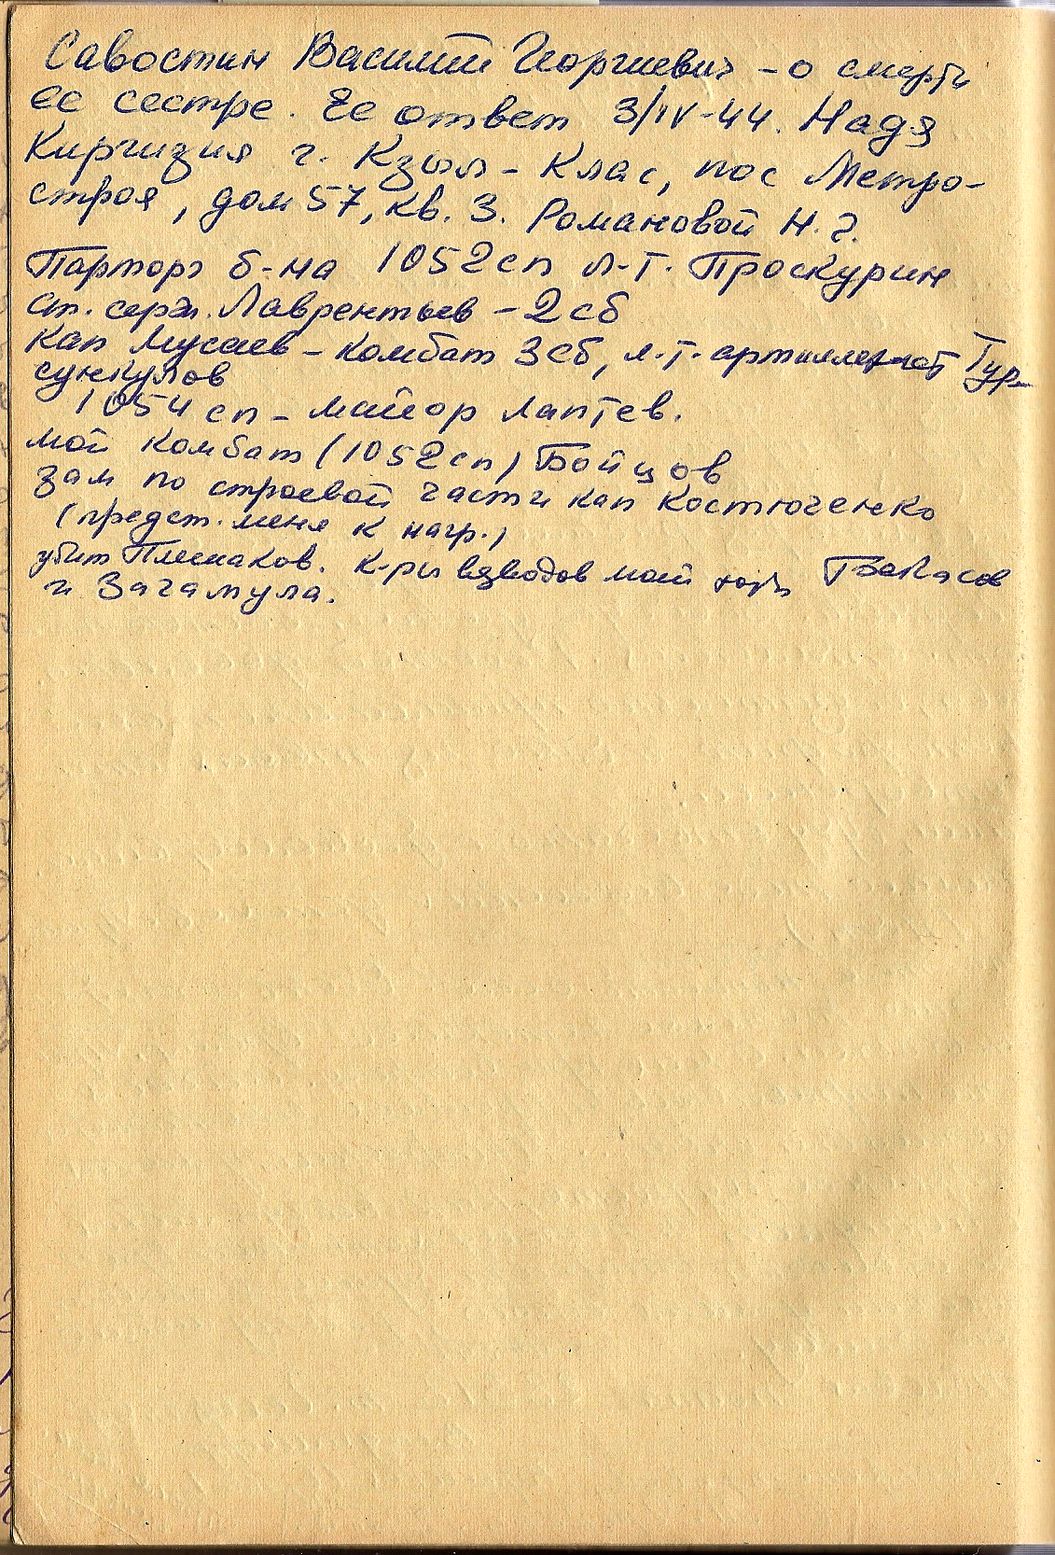 Савостин Василий Георгиевич - о смерти
ее сестре. Ее ответ 3/IV-44. Надя
Киргизия г. Кзыл-Клас, пос Метро-
строя, дом 57, кв. 3. Романовой Н. г.
Парторг б-на 1052 сп л-т. Проскурин
ст. серж. Лаврентьев - 2 сб
Кап Мусаев - комбат 3 сб, л.-т. Тур-
сункулов
1054 сп - майор Лаптев.
мой комбат (1052 сп) Бойцов
зам по строевой части кап Костюченко
(предст. меня к нагр.)
убит Плешаков. к-ры взводов мой Бекасов
и Загамула.